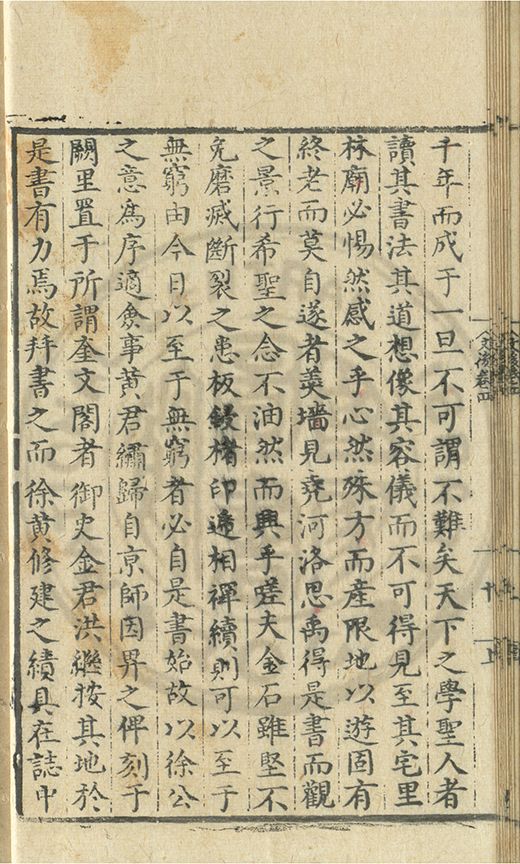 千年而成于一旦不可謂不難矣天下之學聖人者
讀其書法其道想像其容儀而不可得見至其宅里
林廟必惕然感之乎心然殊方而產限地以遊固有
終老而莫自遂者羮墻見堯河洛思禹得是書而觀
之景行希聖之念不油然而興乎嗟夫金石雖堅不
免磨滅斷裂之患板鋟楮印遞相禪續則可以至于
無窮由今日以至于無窮者必自是書始故以徐公
之意爲序適僉事黄君繡歸自京師因畀之俾刻于
闕里置于所謂奎文閣者御史金君洪繼按其地於
是書有力焉故幷書之而徐黄修建之績具在誌中
文後卷四